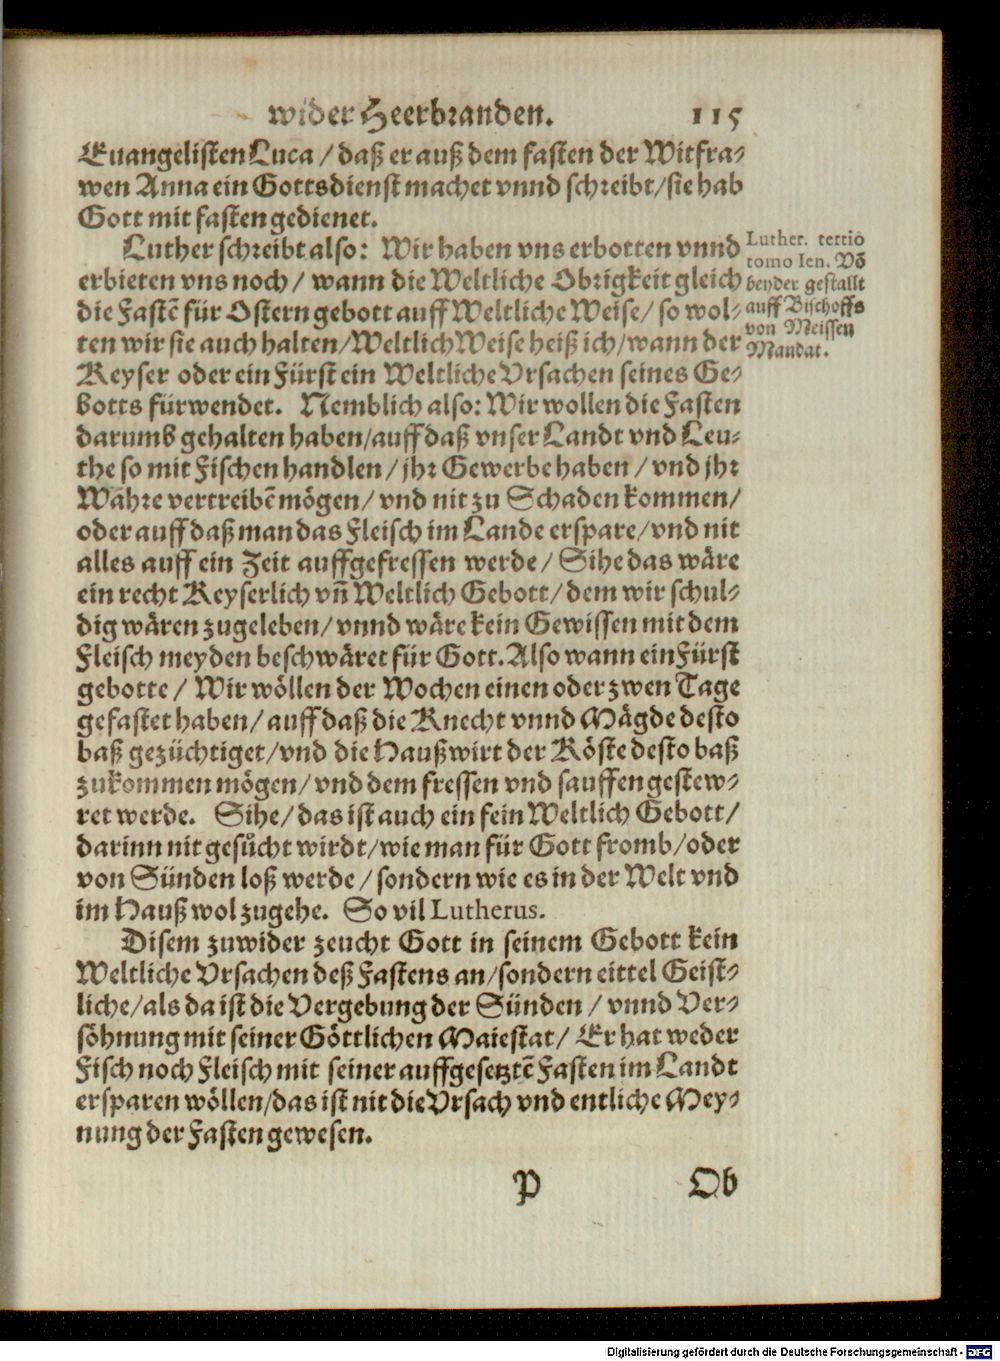 wider Heerbranden. 115
Euangelisten Luca / daß er auß dem fasten der Witfra-
wen Anna ein Gottsdienst machet vnnd schreibt / sie hab
Gott mit fasten gedienet.
Luther schreibt also: Wir haben vns erbotten vnnd
erbieten vns noch / wann die Weltliche Obrigkeit gleich
die Fastē für Ostern gebott auff Weltliche Weise / so wol-
ten wir sie auch halten / Weltlich Weise heiß ich / wann der
Keyser oder ein Fürst ein Weltliche Vrsachen seines Ge-
botts fürwendet. Nemblich also: Wir wollen die Fasten
darumb gehalten haben / auff daß vnser Landt vnd Leu-
the so mit Fischen handlen / jhr Gewerbe haben / vnd jhr
Wahre vertreibē mögen / vnd nit zu Schaden kommen /
oder auff daß man das Fleisch im Lande erspare / vnd nit
alles auff ein Zeit auffgefressen werde / Sihe das wäre
ein recht Keyserlich vn̄ Weltlich Gebott / dem wir schul-
dig wären zugeleben / vnnd wäre kein Gewissen mit dem
Fleisch meyden beschwäret für Gott. Also wann ein Fürst
gebotte / Wir wöllen der Wochen einen oder zwen Tage
gefastet haben / auff daß die Knecht vnnd Mägde desto
baß gezüchtiget / vnd die Haußwirt der Köste desto baß
zukommen mögen / vnd dem fressen vnd sauffen gestew-
ret werde. Sihe / das ist auch ein fein Weltlich Gebott /
darinn nit gesůcht wirdt / wie man für Gott fromb / oder
von Sünden loß werde / sondern wie es in der Welt vnd
im Hauß wol zugehe. So vil Lutherus.
Luther. tertio
tomo Ien. Vō
beyder gestallt
auff Bischoffs
von Meissen
Mandat.
Disem zuwider zeucht Gott in seinem Gebott kein
Weltliche Vrsachen deß Fastens an / sondern eittel Geist-
liche / als da ist die Vergebung der Sünden / vnnd Ver-
söhnung mit seiner Göttlichen Maiestat / Er hat weder
Fisch noch Fleisch mit seiner auffgesetztē Fasten im Landt
ersparen wöllen / das ist nit die Vrsach vnd entliche Mey-
nung der Fasten gewesen.
P Ob
Digitalisierung gefördert durch die Deutsche Forschungsgemeinschaft - DFG